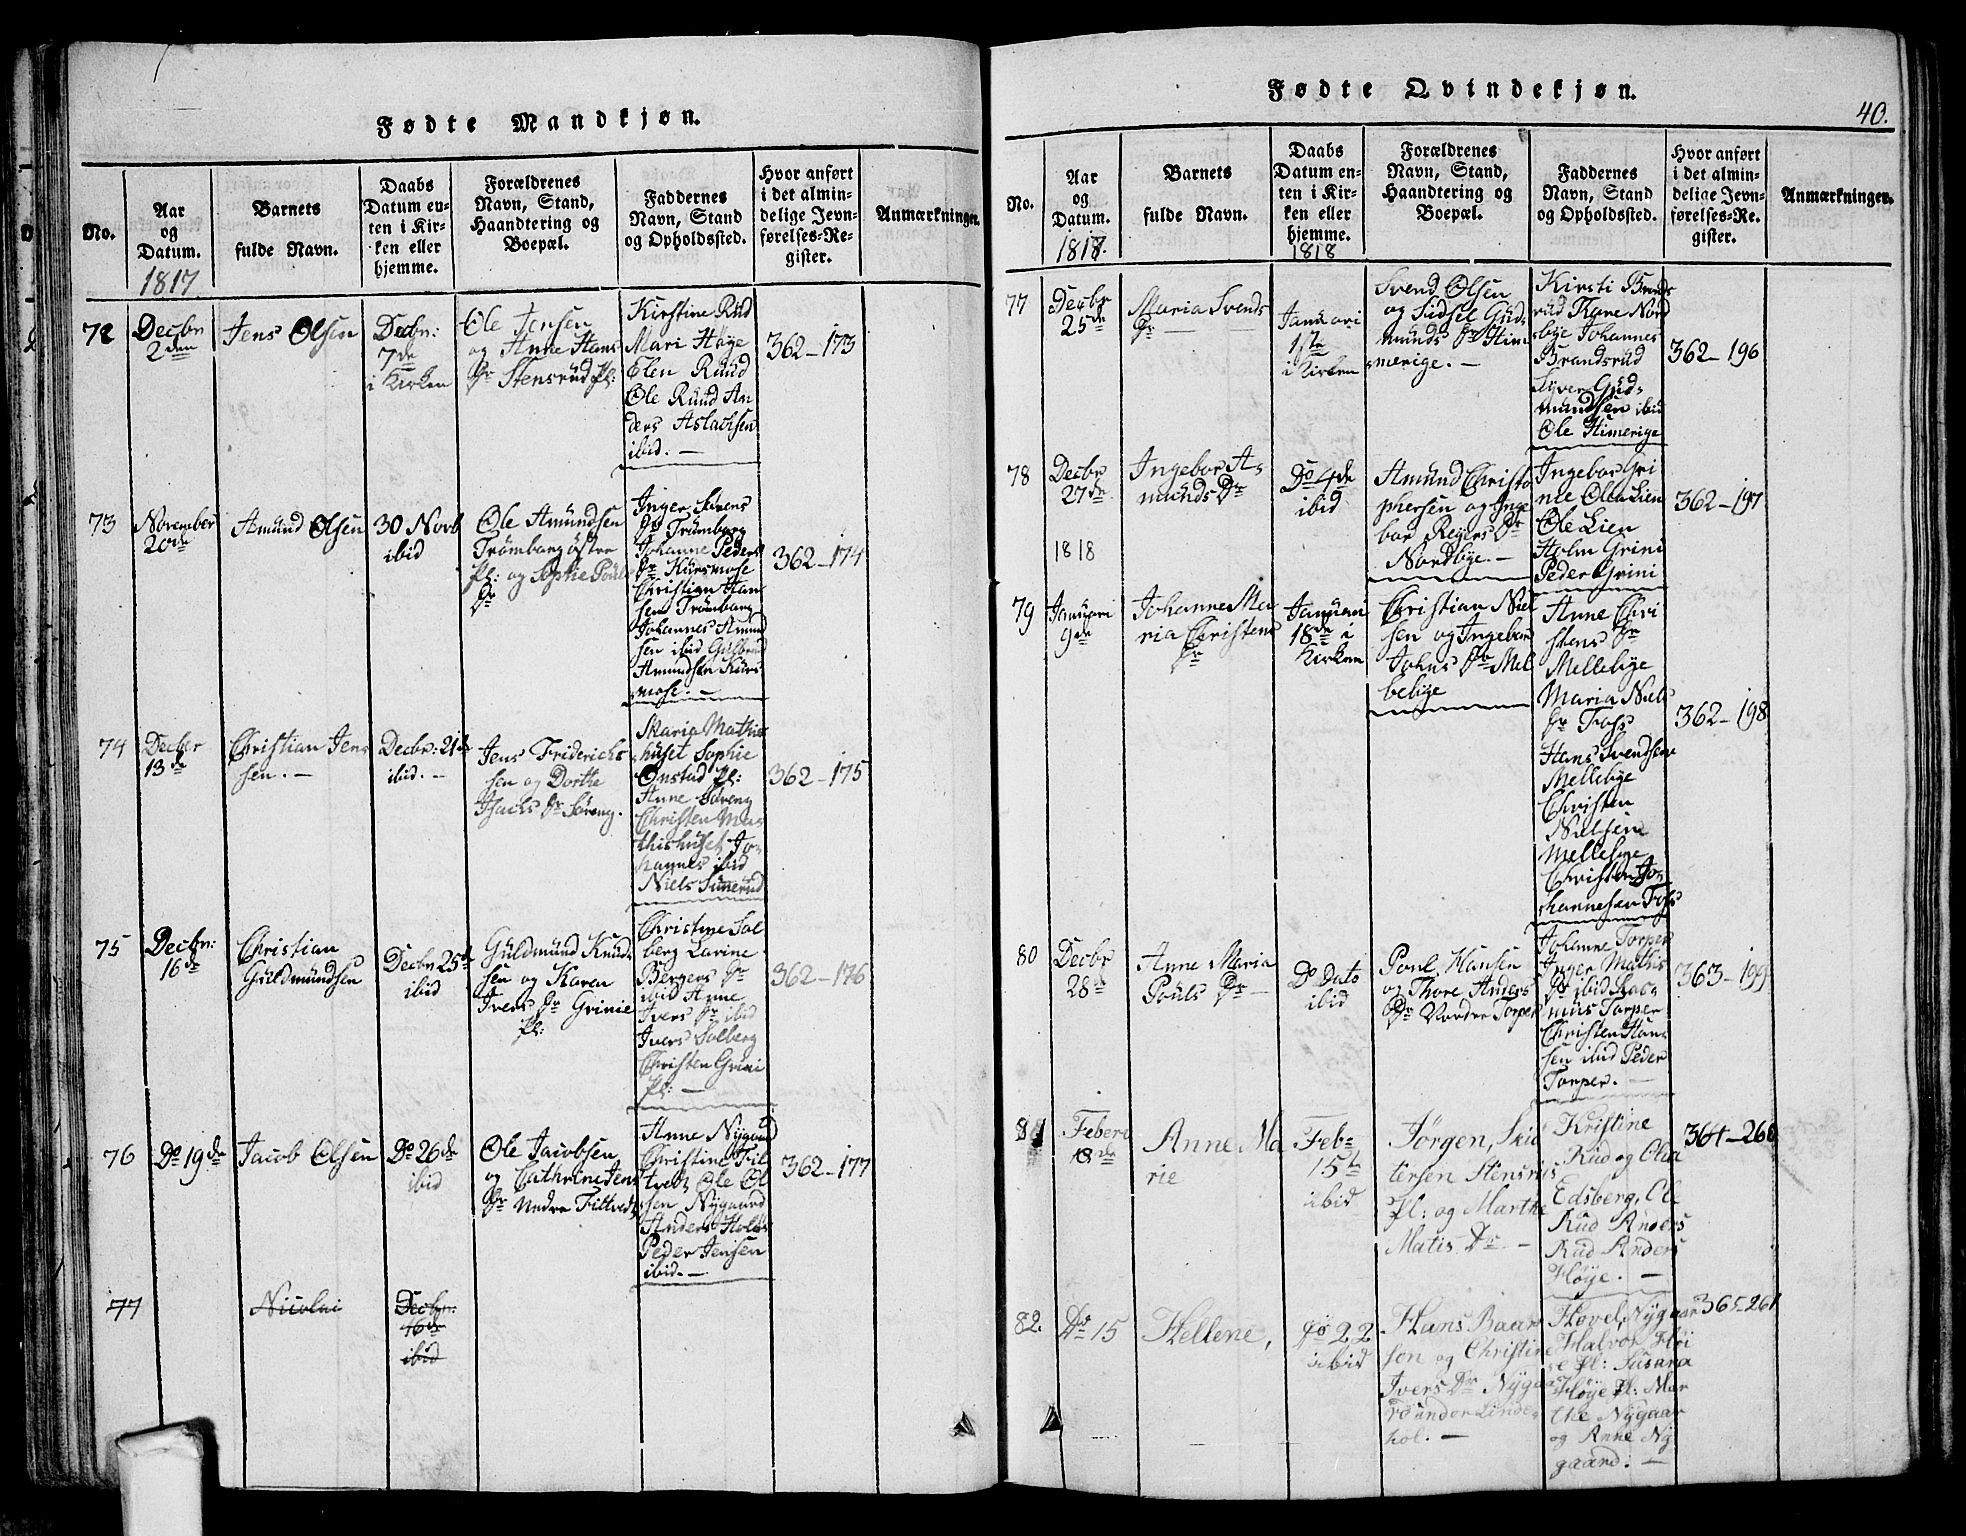 Fødte Mandkjøn.
No.
Aar
og
Datum.
1817
Barnets
fulde Navn.
Daabs
Datum en-
ten i Kir-
ken eller
hjemme.
Forældrenes
Navn, Stand,
Haandtering og
Boepæl.
Faddernes
Navn, Stand
og Opholdssted.
Hvor anført
i det almin-
delige Jevn-
førelses-Re-
gister.
Anmærkninger.
72
Decbr
2den
Jens Olsen
Decbr:
7de
i Kirken
Ole Jensen
og Anne Hans
Dr Stensrud pl:
Kirstine Rud
Mari Høye
Elen Ruud
Ole Ruud An
ders Aslachsen
ibid. –
362–173
73
November
20de
Amund Olsen
30 Novb
ibid
Ole Amundsen
Trømborg østre
pl: og Sophie Pouls
Dr
Inger Sørens
Dr Trømborg
Johanne Peders
Dr Kursmose
Christian Han
sen Trømborg
Johannes Amund
sen ibid Gulbrand
Amundsen Kurs
mose. –
362–174
74
Decbr
13de
Christian Jens
sen. –
Decbr: 21de
ibid. –
Jens Friderichs
sen og Dorthe
Isachs Dr Søreng.
Maria Mathis
huset Sophie
Onstad pl:
Anne Søreng
Christen Ma
thishuset Jo-
hannes ibid
Niels Sunerud
362–175
75
Decbr:
16de
Christian
Guldmundsen
Decbr 25de
ibid
Guldmund Knud
sen og Karen
Ivers Dr Grinie
pl:
Christine Sol
berg Larine
Bergers Dr
ibid Anne
Ivers Dr ibid
Ivers Solberg
Christen Grini
pl: –
362–176
76
Do 19de
Jacob Olsen
Do 26de
ibid
Ole Jacobsen
og Cathrine Jens
Dr Nedre Filtvedt
Anne Nygaard
Christine Fil
tvedt Ole Ol
sen Nygaard
Anders Holøs
Peder Jensen
ibid. –
362–177
77
Nicolai
Decbr:
16de
ibid
Fødte Qvindekjøn.
40.
No.
Aar
og
Datum.
1817.
Barnets
fulde Navn.
Daabs
Datum en-
ten i Kir-
ken eller
hjemme.
1818
Forældrenes
Navn, Stand,
Haandtering og
Boepæl.
Faddernes
Navn, Stand
og Opholdssted.
Hvor anført
i det almin-
delige Jevn-
førelses-Re-
gister.
Anmærkninger.
77
Decbr
25de
Maria Svends
Dr –
Januari
1ste
i Kirken
Svend Olsen
og Sidsel Gud-
munds Dr Him
merige. –
Kirsti Brands
rud Thore Nord
bye Johannes
Brandsrud
Syver Gud-
mundsen ibid
Ole Himerige
362–196
78
Decbr
27de
Ingebor A-
munds Dr
Do 4de
ibid
Amund Christo
phersen og Inge
bor Regers Dr
Nordbye. –
Ingebor Gri
nie Olea Lien
Ole Lien
Holm Grini
Peder Grini
362–197
1818
79
Januari
9de
Johanne Ma
ria Christens
Dr
Januari
18de i
Kirken
Christian Niel
sen og Ingebor
Johns Dr Mel
lebye
Anne Chri
stens Dr
Mellebye
Maria Niels
Dr Foss
Hans Svendsen
Mellebye
Christen
Nielsen
Mellebye
Christen Jo-
hannesen Foss
362–198
80
Decbr
28de
Anne Maria
Pouls Dr –
Do Dato
ibid
Poul Hansen
og Thore Anders
Dr Nordre Torper
Johanne Torper
Inger Mathis
Dr ibid Ras-
mus Torper
Christen Han-
sen ibid Peder
Torper. –
363–199
81
Februa
8de
Anne Ma
rie
Feb-
15t
ibid
Jørgen, Skid
tersen Stensrus
pl: og Marthe
Matis Dr –
Kristine
Rud og Olea
Edsberg, Ole
Rud Anders
Rud Anders
Høye. –
364–260
82.
Do 15
Hellene,
Do 22
ibid
Hans Baar
sen og Christine
Ivers Dr Nygaa
rd under Linde-
hol. –
Hovel, Nygaar
Halvor Høi
e pl: Susana
Høye pl: Mar
the Nygaar
og Anne Ny
gaard. –
365–261